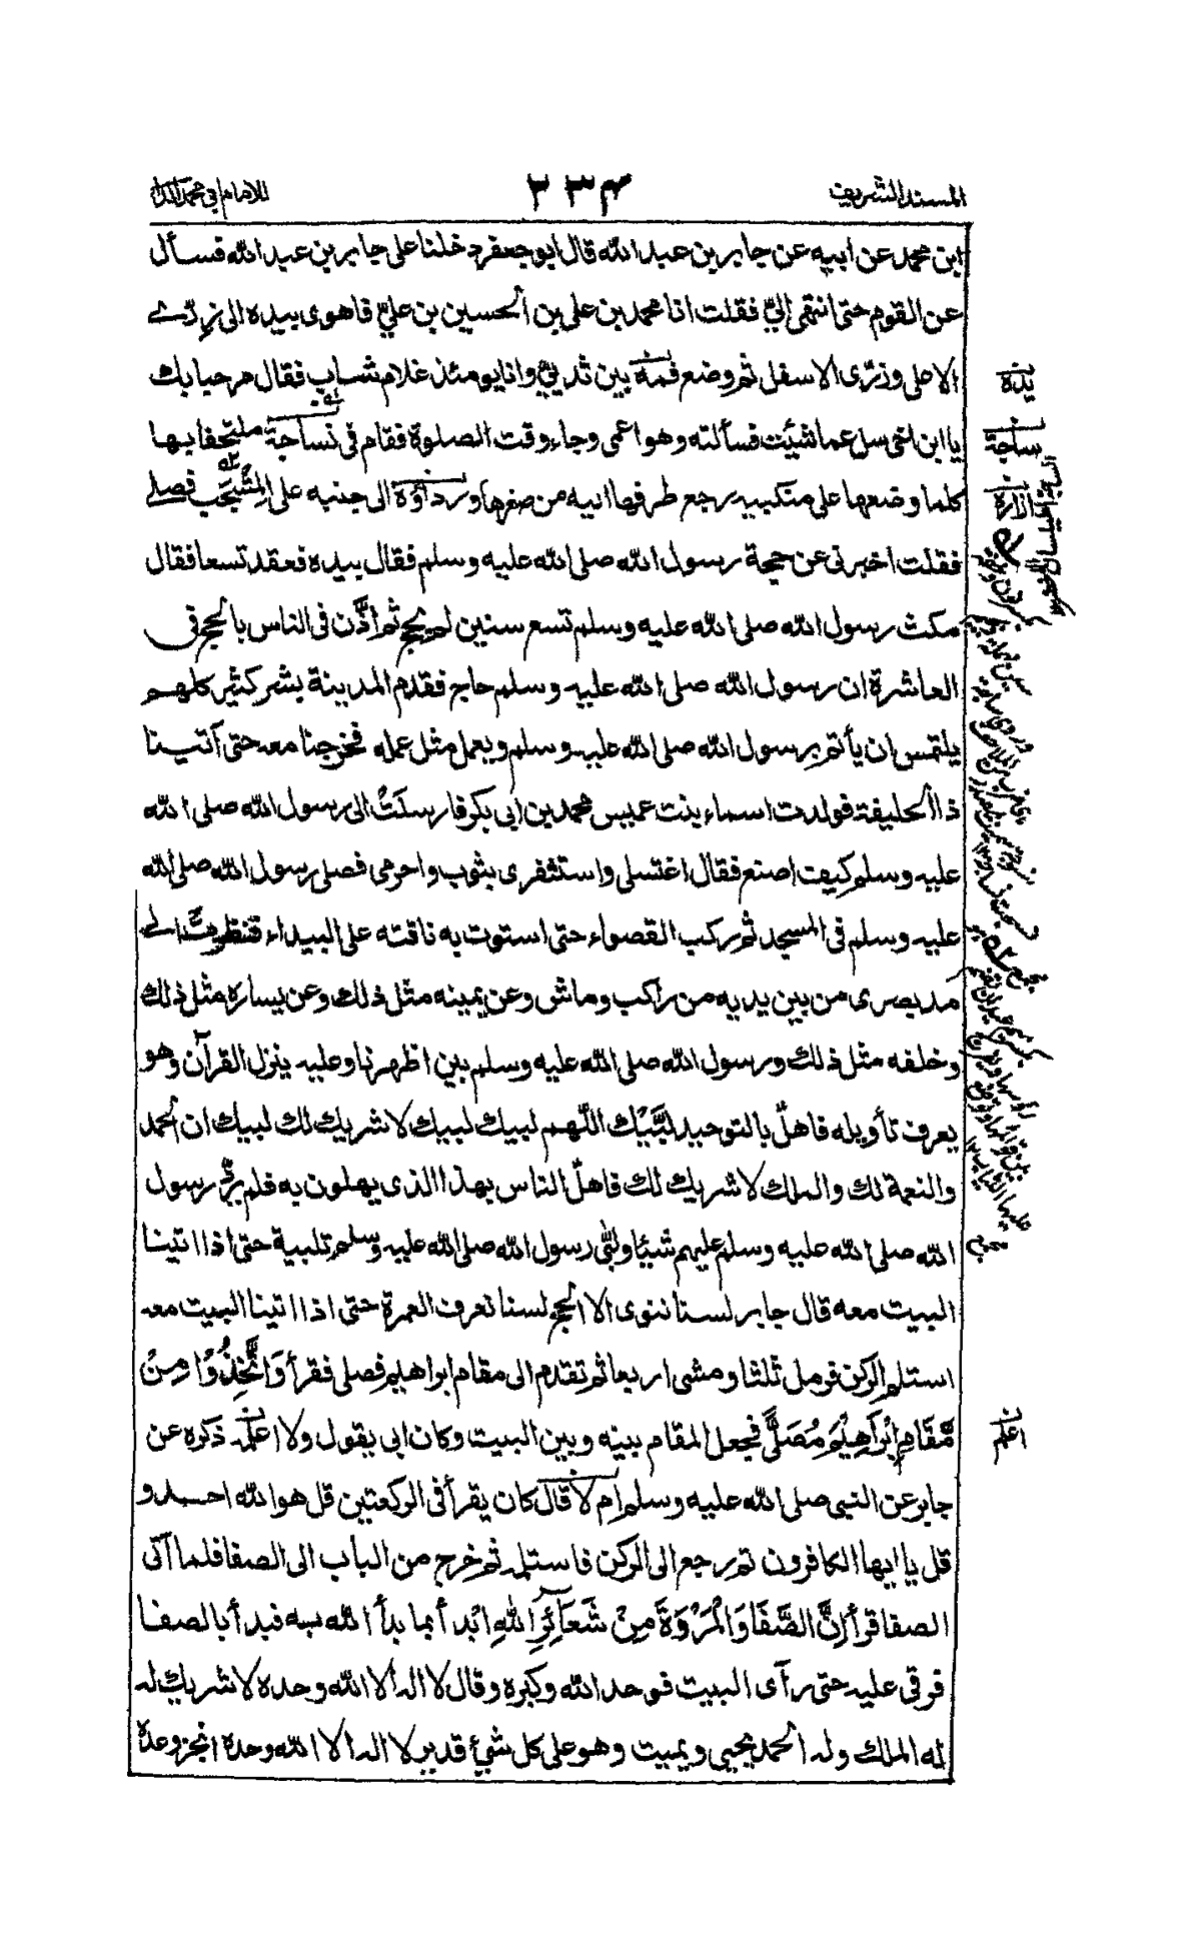 المسند الشريف
للامام ابي محمد الدارمي
ابن محمد عن ابيه عن جابر بن عبد الله قال ابو جعفر دخلنا على جابر بن عبد الله فسأل
عن القوم حتى انتهى اليّ فقلت انا محمد بن علي بن الحسين بن عليّ فاهوى بيده الى زرّي
الاعلى وزرّى الاسفل ثم وضع فمه بين ثدييّ وانا يومئذ غلام شاب فقال مرحبا بك
يا ابن اخى سل عما شئت فسألته وهو اعمى وجاء وقت الصلوة فقام فى نساجة ملتحفا بها
كلما وضعها على منكبيه رجع طرفها اليه من صغرها ورداؤه الى جنبه على المِشْجَب فصلى
فقلت اخبرنى عن حجة رسول الله صلى الله عليه وسلم فقال بيده فعقد تسعا فقال
مكث رسول الله صلى الله عليه وسلم تسع سنين لم يحج ثم أذّن فى الناس بالحج فى
العاشرة ان رسول الله صلى الله عليه وسلم حاج فقدم المدينة بشر كثير كلهم
يلتمس ان يأتم برسول الله صلى الله عليه وسلم ويعمل مثل عمله فخرجنا معه حتى آتينا
ذا الحليفة فولدت اسماء بنت عميس محمد بن ابى بكر فارسلَتْ الى رسول الله صلى الله
عليه وسلم كيف اصنع فقال اغتسلى واستثفرى بثوب واحرمى فصلى رسول الله صلى الله
عليه وسلم فى المسجد ثم ركب القصواء حتى استوت به ناقته على البيداء فنظرت الى
مَد بصرى من بين يديه من راكب وماش وعن يمينه مثل ذلك وعن يساره مثل ذلك
وخلفه مثل ذلك ورسول الله صلى الله عليه وسلم بين اظهرنا وعليه ينزل القرآن وهو
يعرف تأويله فاهلّ بالتوحيد لبَّيْك اللّهم لبيك لبيك لا شريك لك لبيك ان الحمد
والنعمة لك والملك لا شريك لك فاهلّ الناس بهذا الذى يهلون به فلم يردّ رسول
الله صلى الله عليه وسلم عليهم شيئا ولبّى رسول الله صلى الله عليه وسلم تلبية حتى اذا اتينا
البيت معه قال جابر لسنا ننوى الا الحج لسنا نعرف العمرة حتى اذا اتينا البيت معه
استلم الركن فرمل ثلثا ومشى اربعا ثم تقدم الى مقام ابراهيم فصلى فقرأ وَاتَّخِذُوْا مِنْ
مَّقَامِ اِبْرَاهِيْمَ مُصَلًّى فجعل المقام بينه وبين البيت وكان ابى يقول ولا اعلمه ذكره عن
جابر عن النبى صلى الله عليه وسلم ام لا قال كان يقرأ فى الركعتين قل هو الله احد و
قل يا ايها الكافرون ثم رجع الى الركن فاستلمه ثم خرج من الباب الى الصفا فلما آتى
الصفا قرأ اِنَّ الصَّفَا وَالْمَرْوَةَ مِنْ شَعَآئِرِ اللّٰهِ ابْدأ بما بدأ الله به فبدأ بالصفا
فرقى عليه حتى رآى البيت فوحد الله وكبره وقال لا اله الا الله وحده لا شريك له
له الملك وله الحمد يحيى ويميت وهو على كل شئ قدير لا اله الا الله وحده انجز وعده
يده
ساجة
ازاره
اعلم